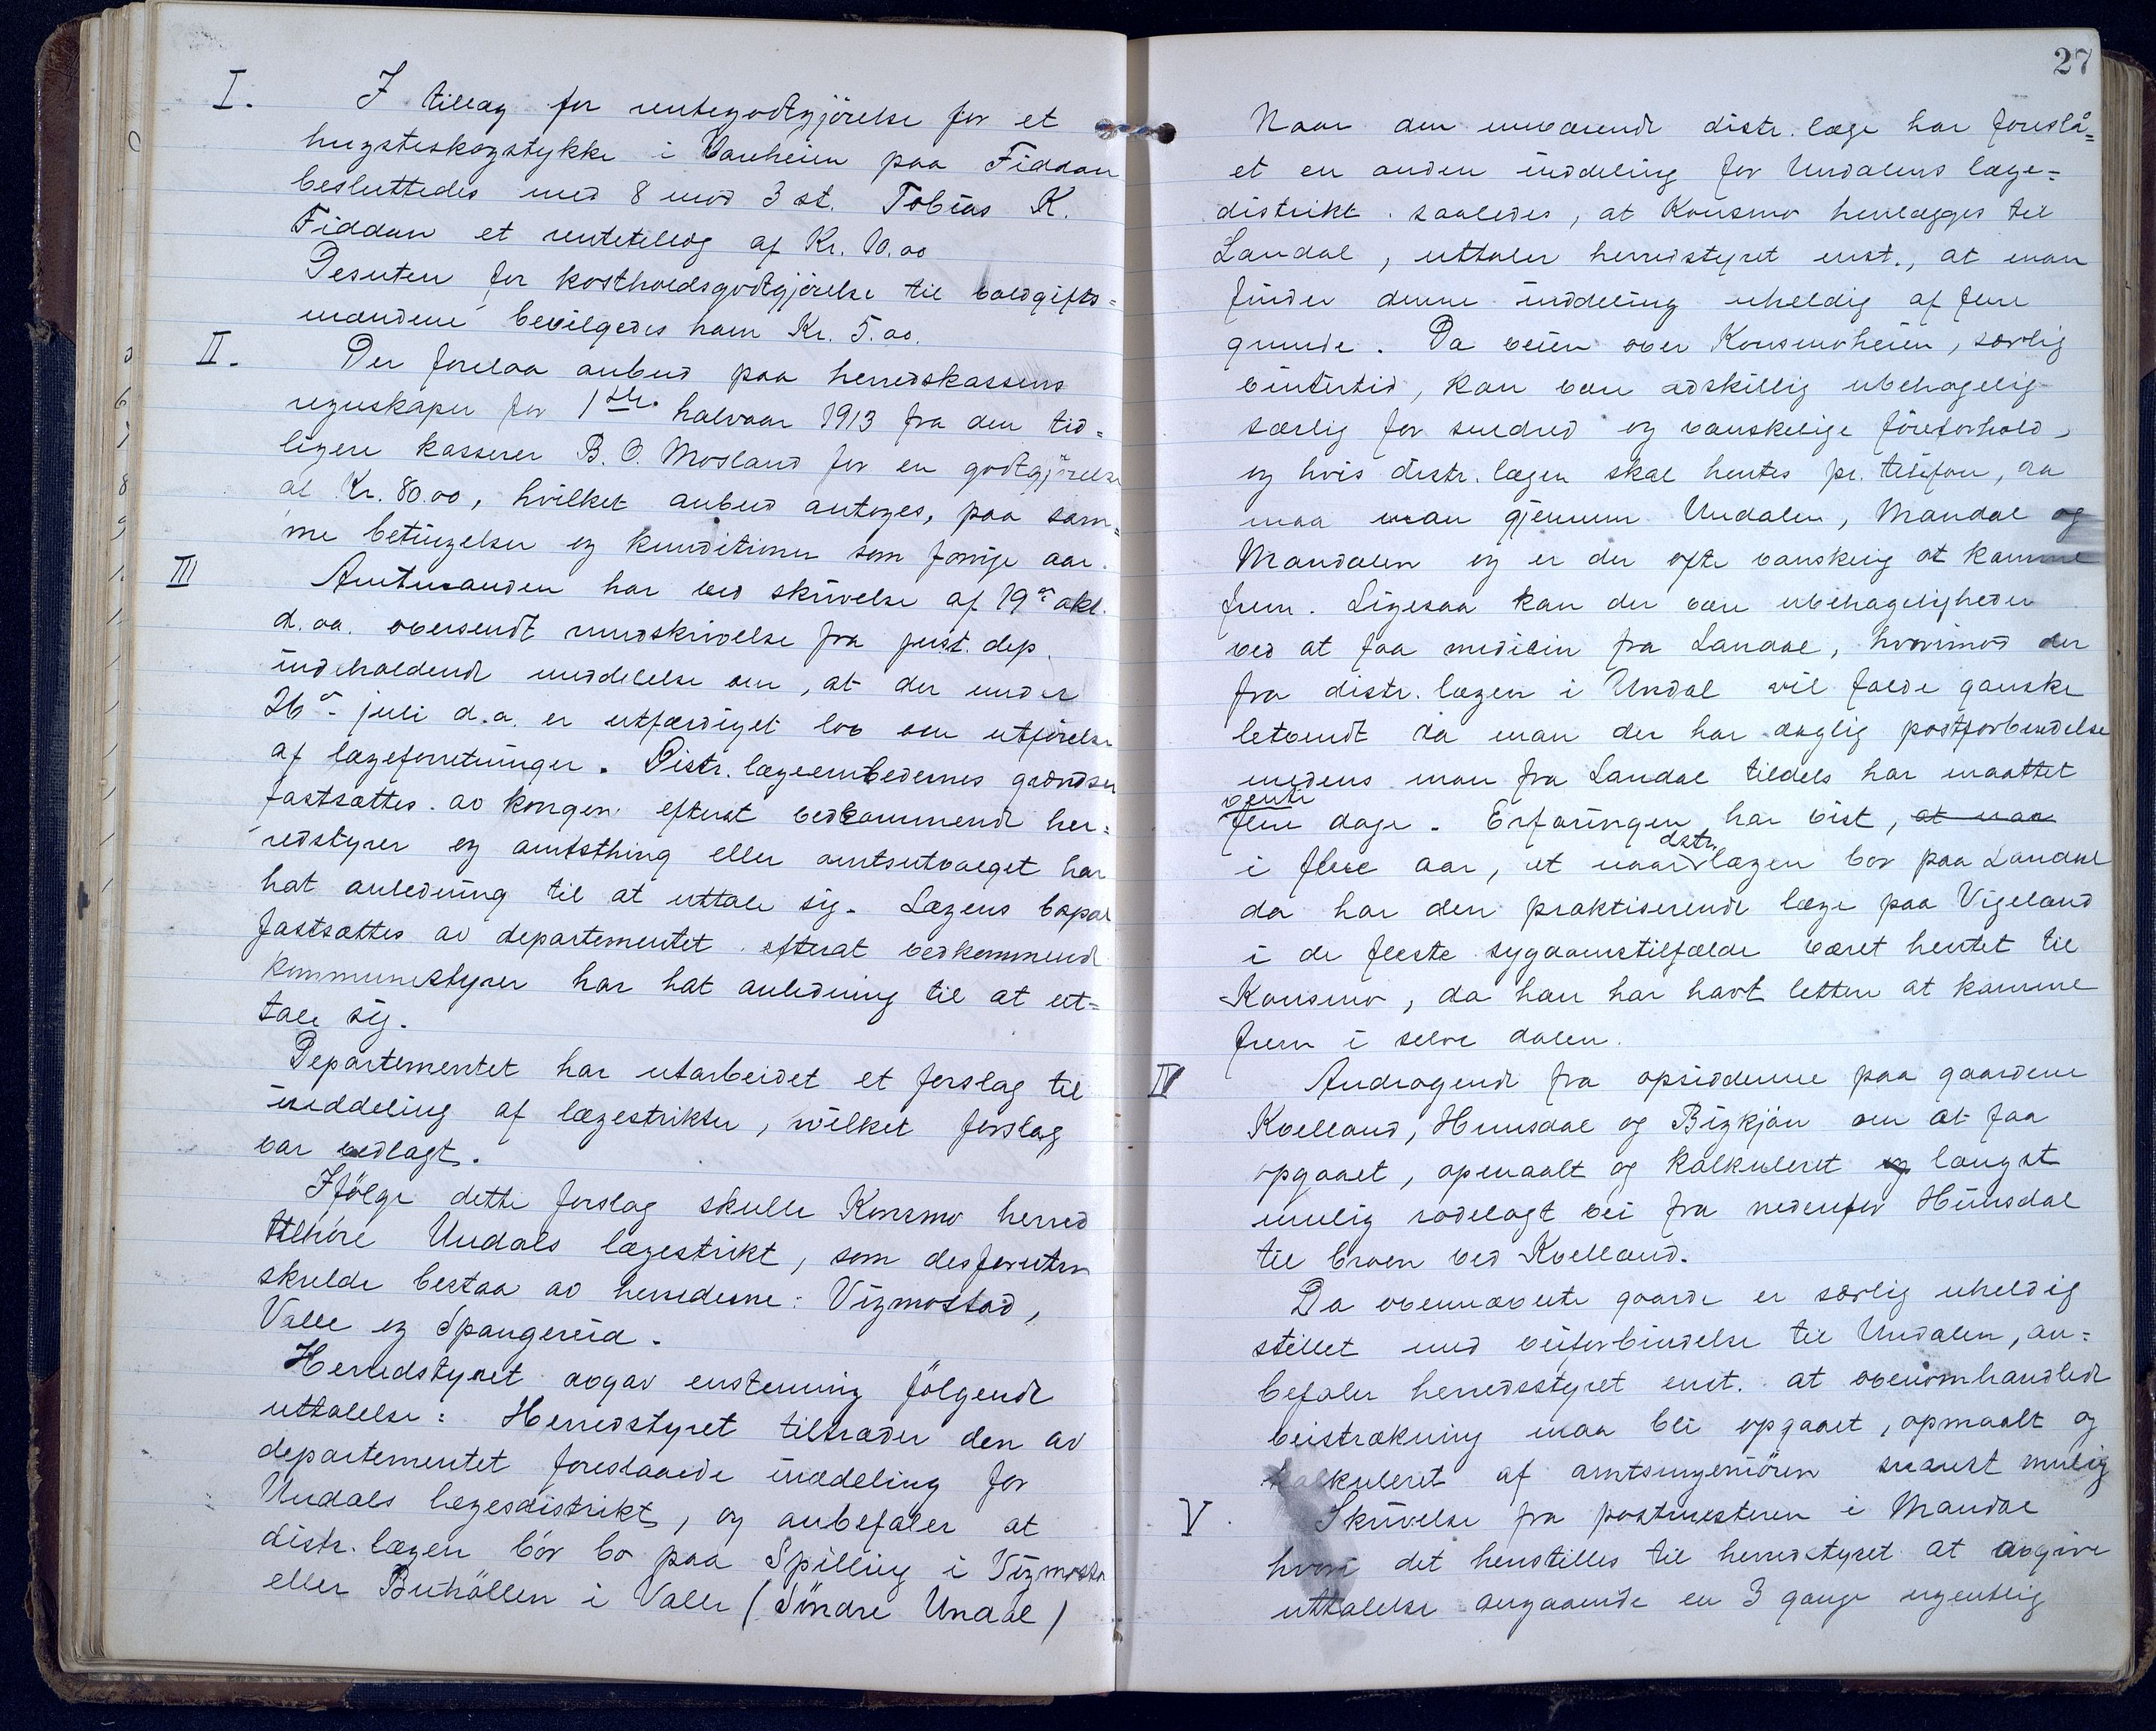 I. I tillæg for rentegodtgjörelse for et
hugsteskogstykke i Vanheien paa Fiddan
besluttedes med 8 mod 3 st. Tobias K.
Fiddan et rentetillæg af Kr. 10.00
Desuten for kostholdsgodtgjörelse til voldgifts=
mændene bevilgedes ham Kr. 5.00.
II. Der forelaa anbud paa herredskassens
regnskaper for 1ste halvaar 1913 fra den tid=
ligere kasserer B. O. Mosland for en godtgjörelse
al Kr. 80.00, hvilket anbud antoges, paa sam=
me betingelser og kunditioner som forrige aar.
III Amtmanden har ved skrivelse af 19de okt.
d. aa. oversendt rundskrivelse fra just. dep.
indeholdende meddelelse om, at der under
26de juli d.a. er utfærdiget lov om utförelse
af lægeforretninger. Distr. lægeembedernes grændser
fastsættes av kongen efterat vedkommende her=
redstyrer og amtsthing eller amtsutvalget har
hat anledning til at uttale sig. Lægens bopæl
fastsættes av departementet efterat vedkommende
kommunestyrer har hat anledning til at ut=
tale sig.
Departementet har utarbeidet et forslag til
inddeling af lægestrikter, hvilket forslag
var vedlagt.
Ifölge dette forslag skulle Konsmo herred
tilhöre Undals lægestrikt, som desforuten
skulde bestaa av herrederne: Vigmostad,
Valle og Spangereid.
Herredstyret avgav enstemmig fölgende
uttalelse: Herredstyret tiltræder den av
departementet foreslaaede inddeling for
Undals lægesdistrikt, og anbefaler at
distr. lægen bör bo paa Spilling i Vigmosta
eller Buhöllen i Valle (Söndre Undal)
27
Naar den nuværende distr. læge har foreslå=
et en anden inddeling for Undalens læge=
distrikt. saaledes, at Konsmo henlægges til
Landal, uttaler herredstyret enst., at man
finder denne inddeling uheldig af flere
grunde. Da veien over Konsmoheien, særlig
vintertid, kan være adskillig ubehagelig
særlig for snedrev og vanskelige föreforhold,
og hvis distr. lægen skal hentes pr. telefon, da
maa man gjennem Undalen, Mandal og
Mandalen og er der ofte vanskelig at komme
frem. Ligesaa kan der være ubehageligheder
ved at faa medicin fra Landal, hvorimod der
fra distr. lægen i Undal vil falde ganske
letvendt da man der har daglig postforbindelse
medens man fra Landal tildels har maattet
vente
flere dage. Erfaringen har vist, at naar
i flere aar, at naar dstr. lægen bor paa Landal
da har den praktiserende læge paa Vigeland
i de fleste sygdomstilfælde været hentet til
Konsmo, da han har havt lettere at komme
frem i selve dalen.
IV Andragende fra opsidderne paa gaardene
Kvelland, Hunsdal og Birkjön om at faa
opgaaet, opmaalt og kalkuleret og langst
mulig rodelagt vei fra nedenfor Hunsdal
til broen ved Kvelland.
Da ovennævnte gaarde er særlig uheldig
stillet med veiforbindelse til Undalen, an=
befaler herredsstyret enst. at ovenomhandlede
veistrækning maa bli opgaaet, opmaalt og
kalkuleret af amtsingeniören snarest mulig
V. Skrivelse fra postmesteren i Mandal
hvori det henstilles til herredstyret at avgive
uttalelse angaaende en 3 gange ugentlig